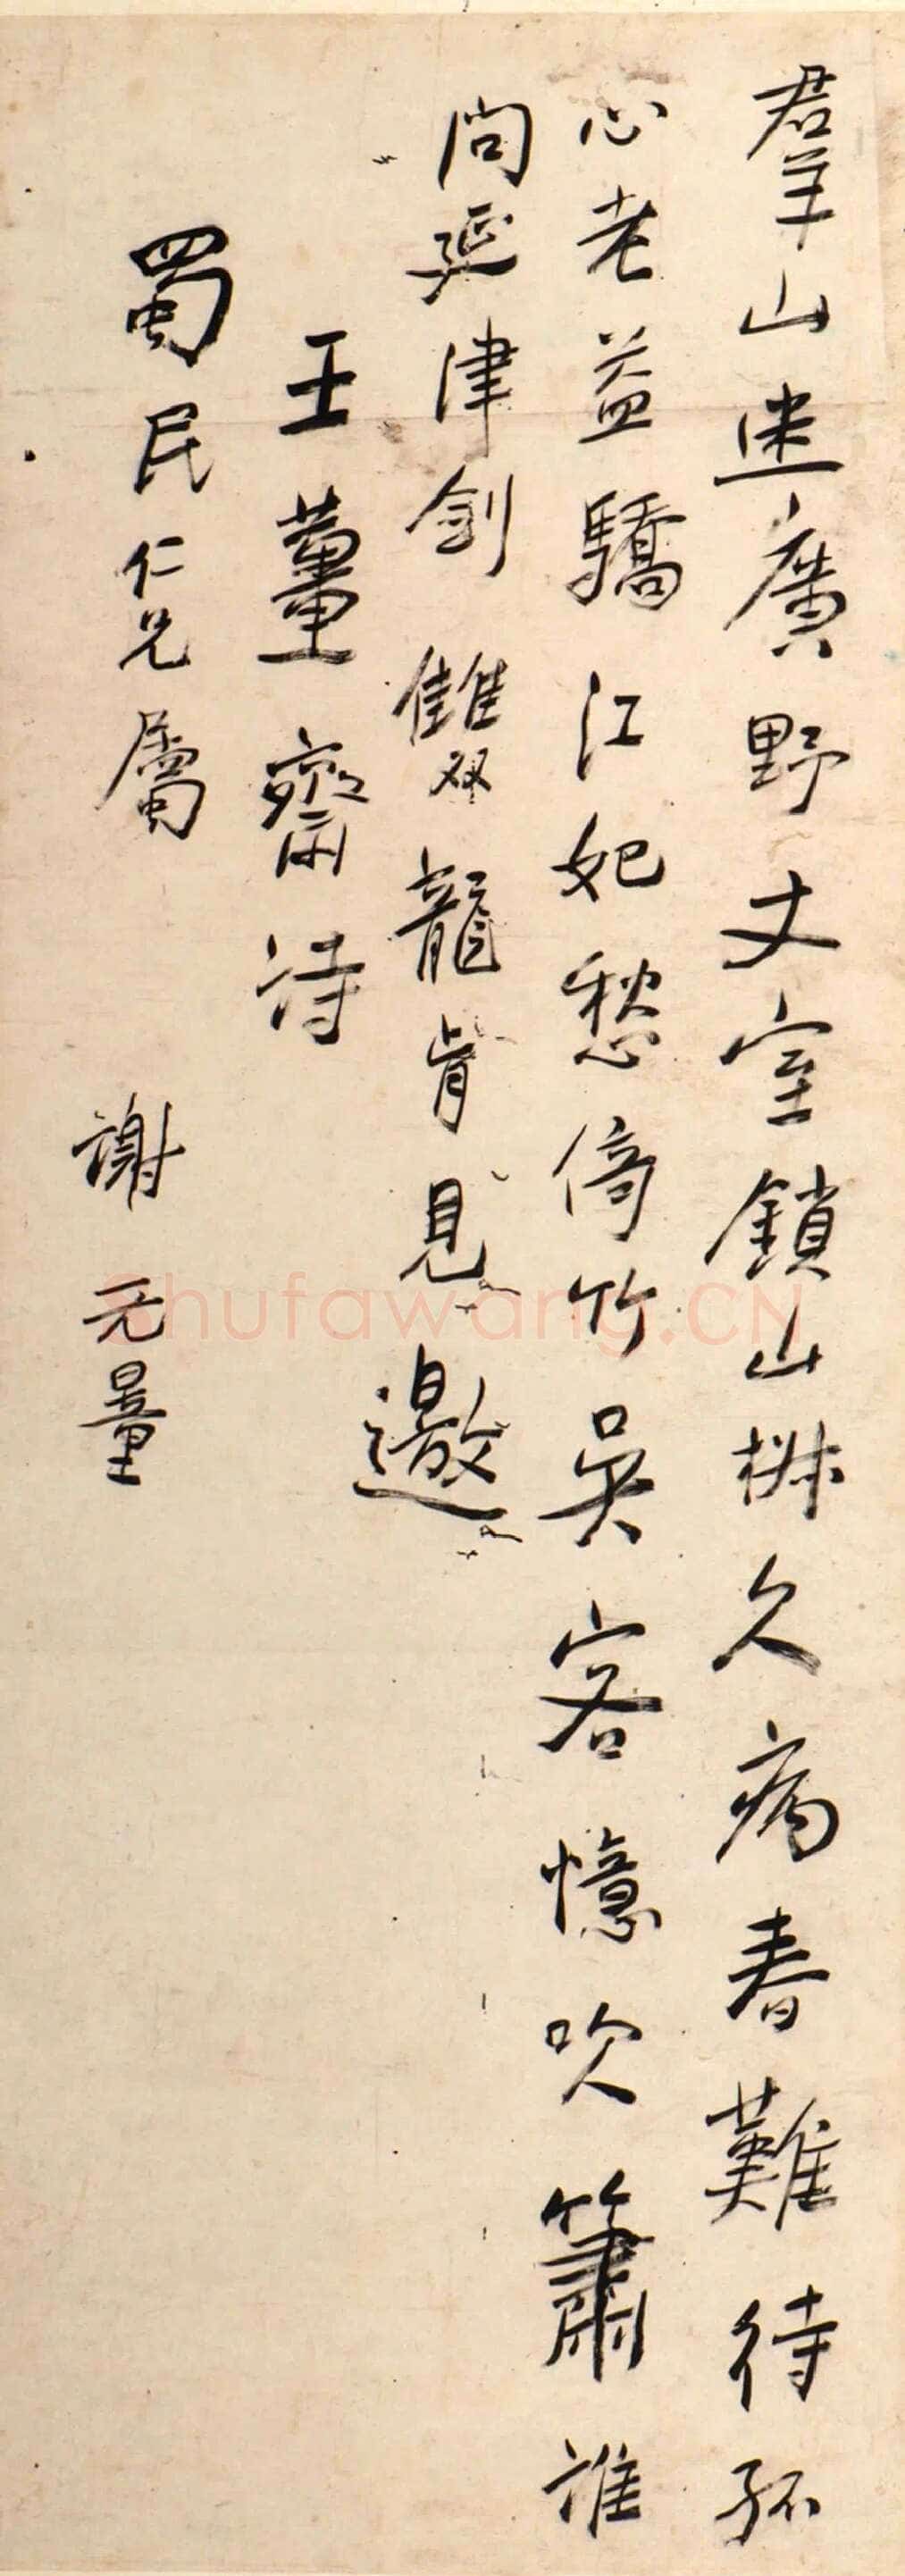 羣山迷廣野丈室鎖山椒久病春難待孤
心老益驕江妃愁倚竹吳客憶吹簫誰
問延津劍雙龍肯見邀
王薑齋詩
蜀民仁兄屬
謝无量
Shufawang.CN